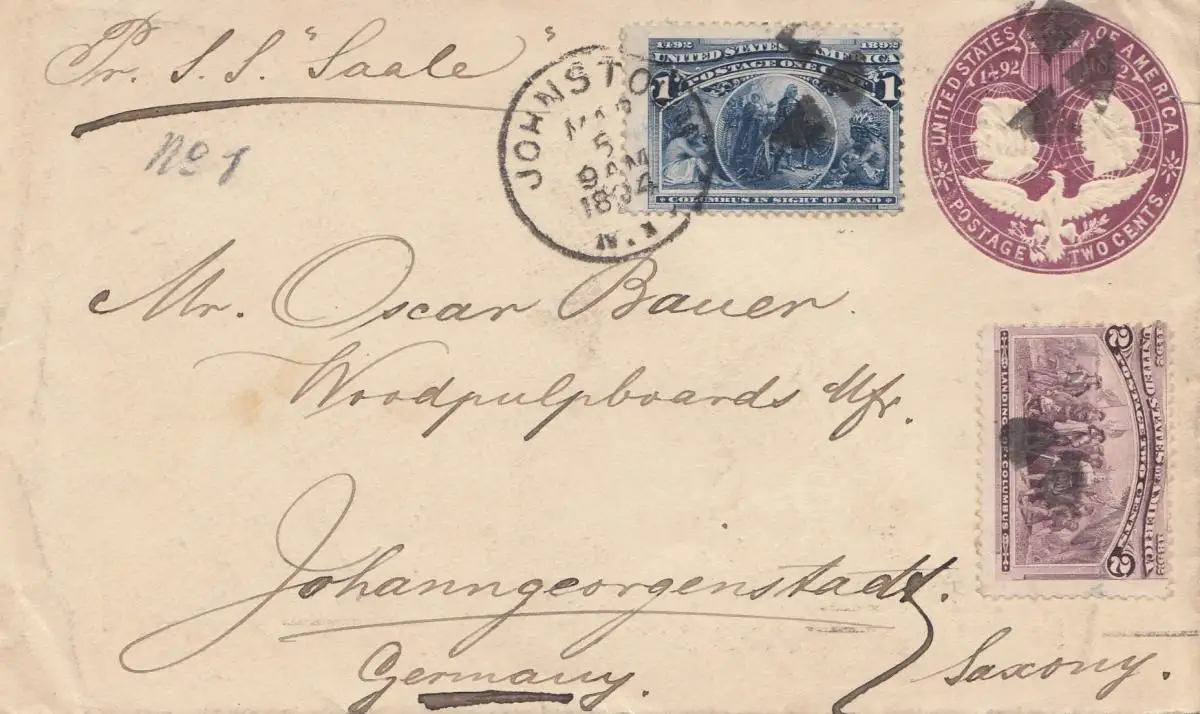 Pr. S. S. "Saale"
No 1
JOHNSTOWN
MAR
5
9 AM
1894
N.Y.
1492 1892
UNITED STATES OF AMERICA
POSTAGE ONE CENT
1 1
COLUMBUS IN SIGHT OF LAND
UNITED STATES OF AMERICA
1492 1892
POSTAGE TWO CENTS.
Mr. Oscar Bauer.
Woodpulpboards Mfr.
UNITED STATES OF AMERICA
POSTAGE TWO CENTS
2 2
LANDING OF COLUMBUS
Johanngeorgenstadt.
Germany.
Saxony.